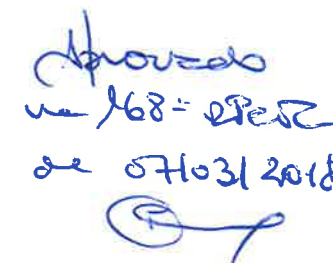 Aprovado
na 168ª
de 07/03/2018